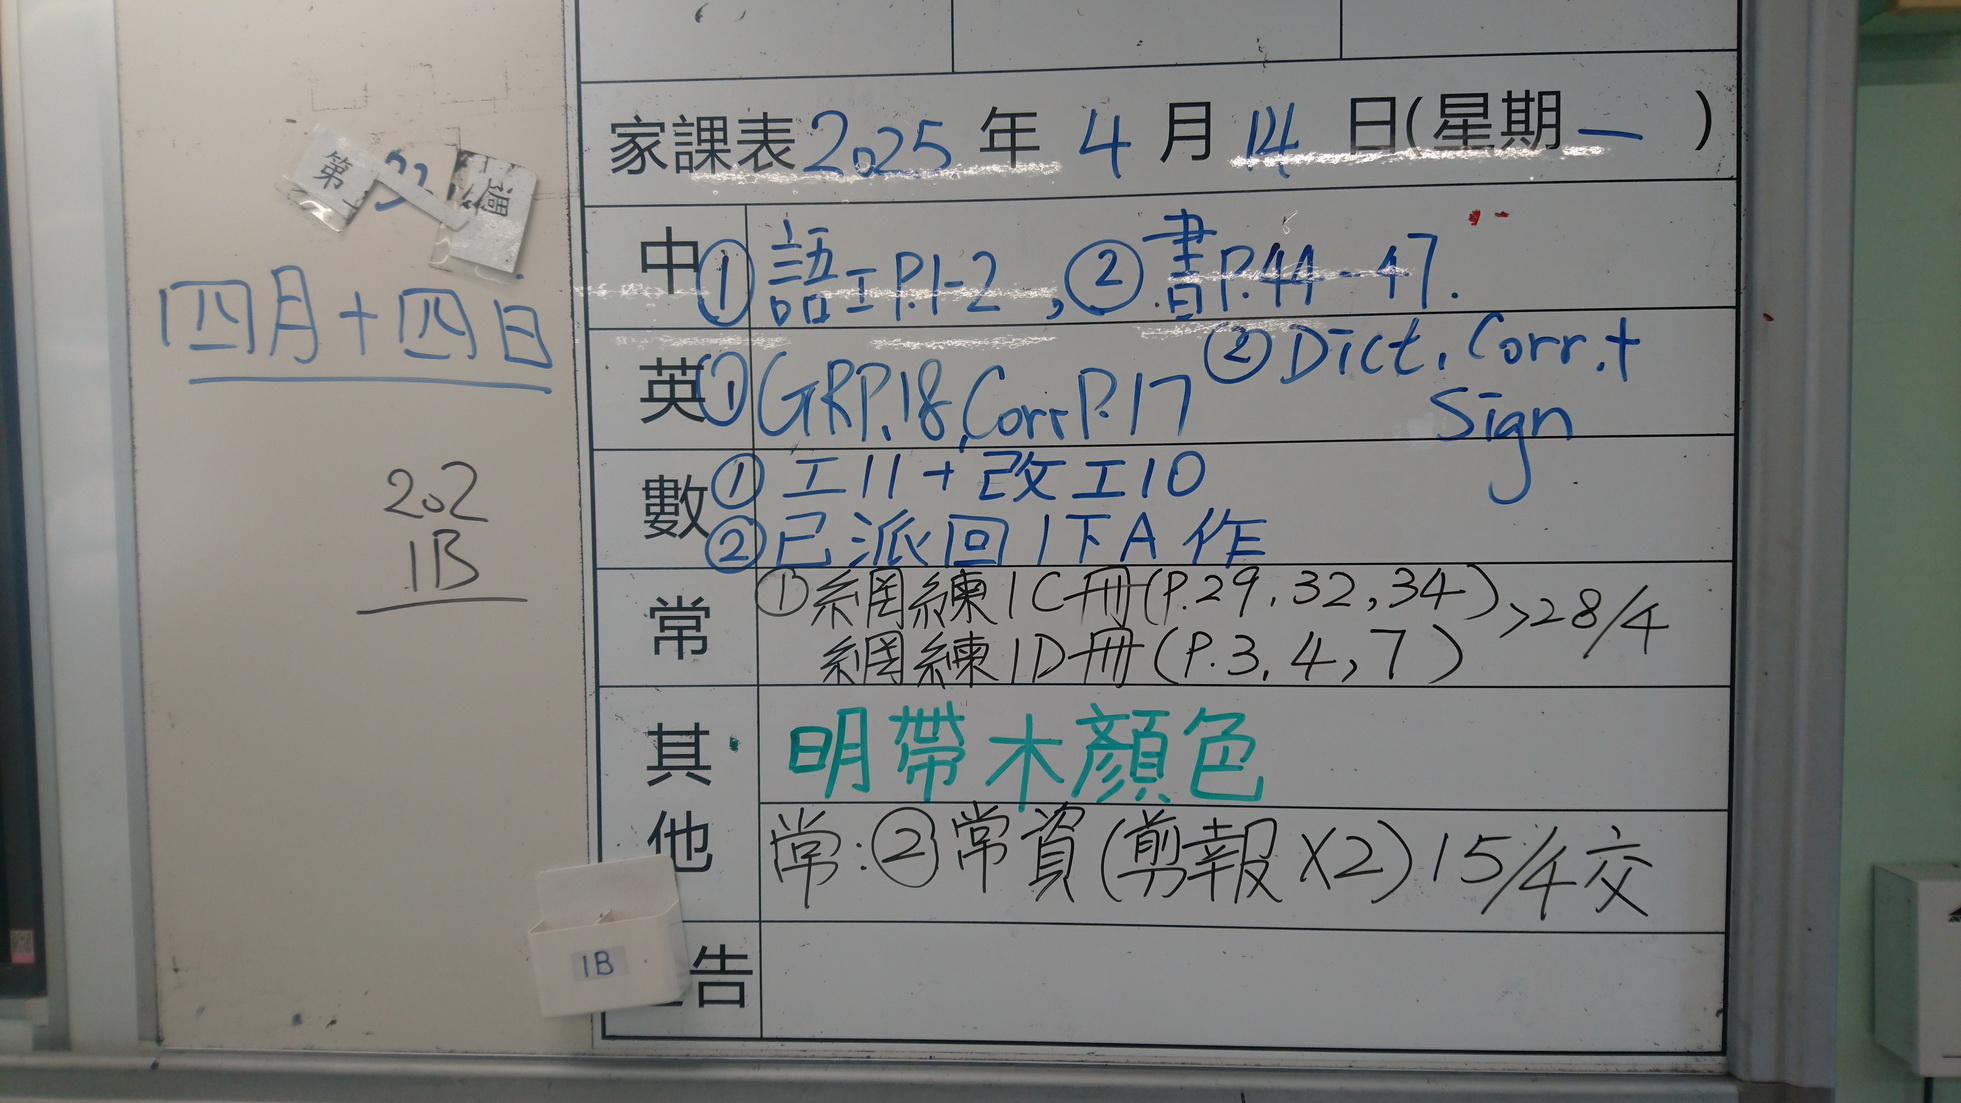 家課表 2025 年 4 月 14 日(星期一)
第 32 篇
四月十四日
202
1B
中 ① 語工P.1-2, ② 書P.44-47.
英 ① GRP.18, Corr P.17 ② Dict. Corr. +
Sign
數 ① 工11+改工10
② 已派回1下A作
常 ① 網練1C冊(P.29, 32, 34) >28/4
網練1D冊(P.3, 4, 7)
其他 明帶木顏色
常: ② 常資(剪報X2) 15/4交
告
1B